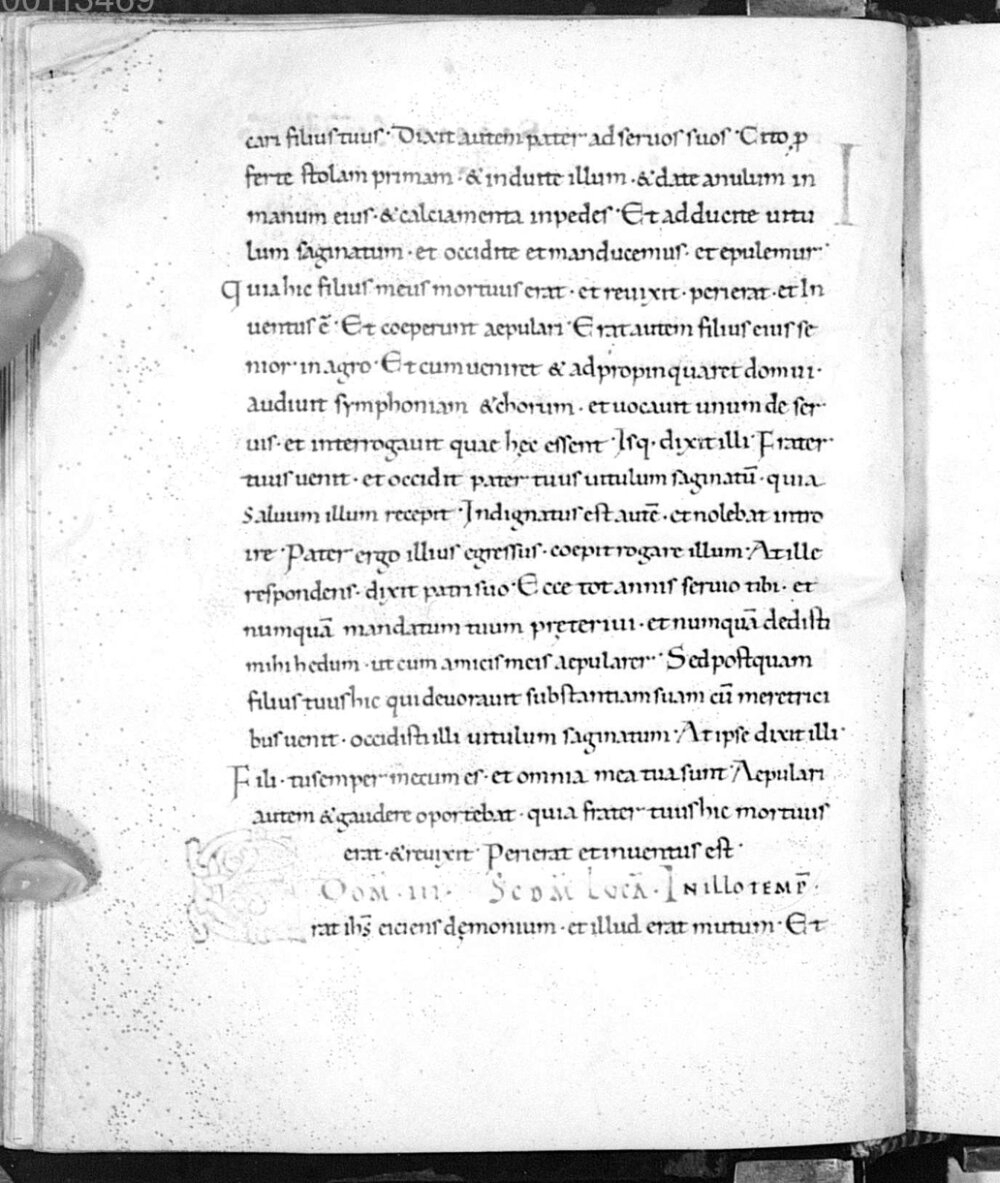 00113469
cari filius tuus· Dixit autem pater ad seruos suos· Cito p
ferte stolam primam· & induite illum· & date anulum in
manum eius· & calciamenta in pedes· Et adducite uitu
lum saginatum· et occidite et manducemus· et epulemur·
Quia hic filius meus mortuus erat· et reuixit· perierat· et in
uentus ē· Et coeperunt aepulari· Erat autem filius eius se
nior in agro· Et cum ueniret & adpropinquaret domui·
audiuit symphoniam & chorum· et uocauit unum de ser
uis· et interrogauit quae hęc essent· Isq· dixit illi· Frater
tuus uenit· et occidit pater tuus uitulum saginatū· quia
saluum illum recepit· Indignatus est autē· et nolebat intro
ire· Pater ergo illius egressus· coepit rogare illum· At ille
respondens· dixit patri suo· Ecce tot annis seruio tibi· et
numquā mandatum tuum pręteriui· et numquā dedisti
mihi hedum· ut cum amicis meis aepularer· Sed postquam
filius tuus hic qui deuorauit substantiam suam cū meretrici
bus uenit· occidisti illi uitulum saginatum· At ipse dixit illi·
Fili· tu semper mecum es· et omnia mea tua sunt· Aepulari
autem & gaudere oportebat· quia frater tuus hic mortuus
erat· & reuixit· Perierat et inuentus est·
DOM̄· III· SCDM̄ LUCĀ· IN ILLO TEMP̄·
Erat ihs̄ eiciens dęmonium· et illud erat mutum· Et
I